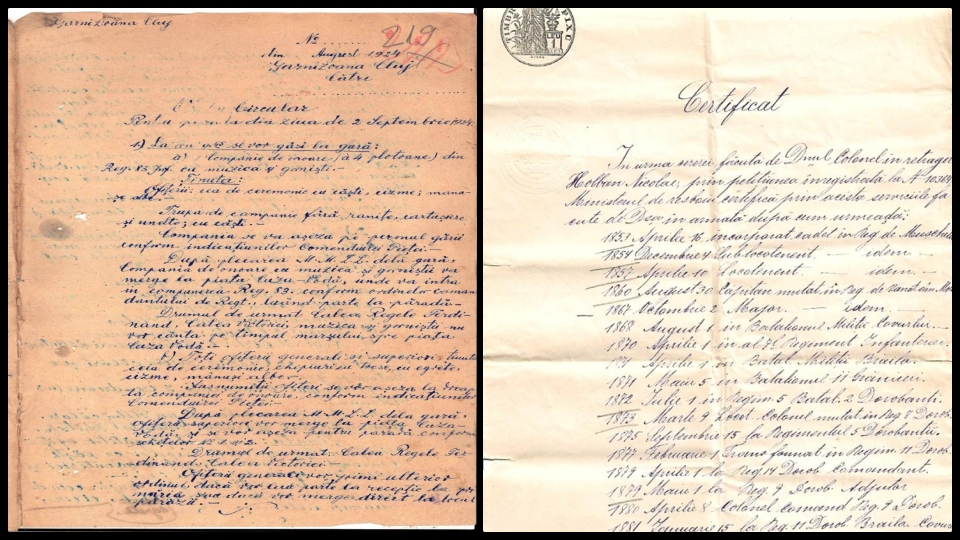 Garnizoana Cluj
No ....... 219
din August 1924
Garnizoana Cluj
Către
Circular
Pentru din ziua de 2 Septembrie 1924
1) La se vor găsi la gară:
a) Companie de onoare (à 4 plotoane) din
Reg. 83 Inf. cu muzica și goniști.-
Ținuta:
Ofițerii: cea de ceremonie cu căști, cizme; mana-
Trupa de companie fără ranițe, cartușiere
și undțe; cu căști.-
Compania se va așeza pe peronul gării
conform indicațiunilor Comenduirei Pieței.-
După plecarea M.M.L.L. dela gară,
Compania de onoare cu muzica și goniștii va
merge la piața Cuza-Vodă, unde va intra
în compunerea Reg. 83. conform ordinelor coman
dantului de Regt., luând parte la paradă.-
Drumul de urmat Calea Regele Ferdi-
nand, Calea Victoriei, muzica și goniștii nu
vor cânta pe timpul marșului spre piața
Cuza Vodă.-
b) Toți ofițerii generali și superiori, ținuta
cea de ceremonie, chipiuri cu cu egrete,
cizme, mănuși albe.-
Susnumiții ofițeri se vor așeza la
la compania de onoare, conform indicațiunilor
Comenduirei Pieței.-
După plecarea M.M.L.L. dela gară
ofițerii superiori vor merge la piața Cuza-
Vodă și se vor așeza pentru paradă conform
schițelor No 1 și 2.-
Drumul de urmat: Calea Regele Fer-
dinand, Calea Victoriei.-
Ofițerii generali vor primi ulterior
ordinul, dacă vor lua parte la recepția la pri-
măria, sau dacă vor merge direct la locul
Certificat
In urma cererei făcută de Dnul Colonel in retragere
Holban Nicolae, prin petitiunea inregistrată la No 10364
Ministerul de resboiu certifică prin acesta serviciile fă
cute de Dsa in armată după cum urmeadă:
1853 Aprilie 16 incorporat cadet in Reg. de Muschetari
1854 Decembre 4 Sub locotenent. — idem —
1857 Aprilie 10 Locotenent — idem. —
1860 August 30 Capitan mutat in Reg. de
1867 Octombre 2 Major. — idem —
1868 August 1 in Batalionul Militie Covurlui.—
1870 Aprilie 1 in al 7lea Regiment Infanterie.
1871 Aprilie 1 in Batal. Militii Braila.
1871 Maiu 5 in Batalionul 11 Grăniceri.
1872 Iulie 1 in Regim 5 Batal. 2 Dorobanti.
1873 Marte 9 Locot. Colonel mutat in Reg 8 Dorob.
1875 Septembre 15 la Regimentul 5 Dorobanti.
1877 Februarie 1 in Regim 11 Dorob
1879 Aprilie 1 la Reg 14 Dorob. Comandant.
1879 Maiu 1 la Reg. 9 Dorob Adjutor
1880 Aprilie 8 Colonel, comand Reg. 9 Dorob.
1881 Ianuarie 15 la Reg. 11 Dorob. Braila